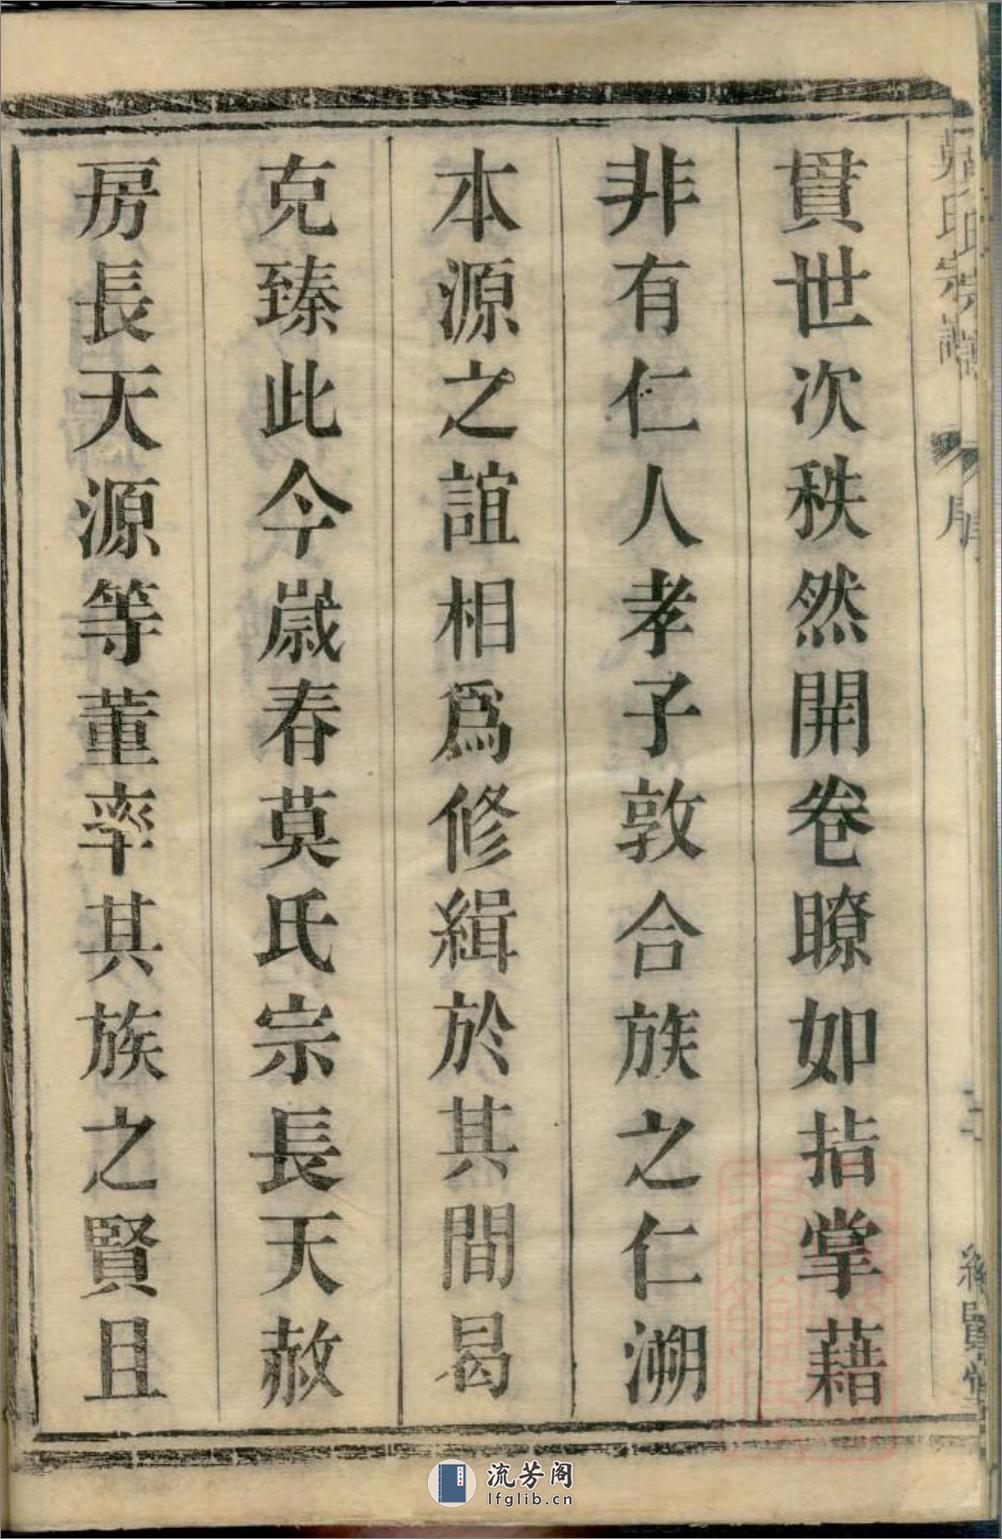 貫世次秩然開卷瞭如指掌藉
非有仁人孝子敦合族之仁溯
本源之誼相爲修緝於其間曷
克臻此今嵗春莫氏宗長天赦
房長天源等董率其族之賢且
氏宗譜
序
流芳阁
lfglib.cn